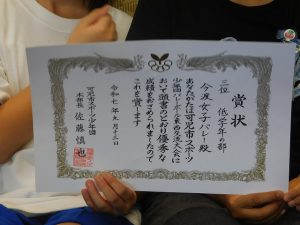 賞状
三位 低学年の部
今渡女子バレー殿
あなたがたは可児市スポーツ
少年団バレーボール東西交流大会に
おいて頭書のとおり優秀な
成績をおさめられましたので
これを賞します
令和七年九月十三日
可児市スポーツ少年団
本部長 佐藤慎也